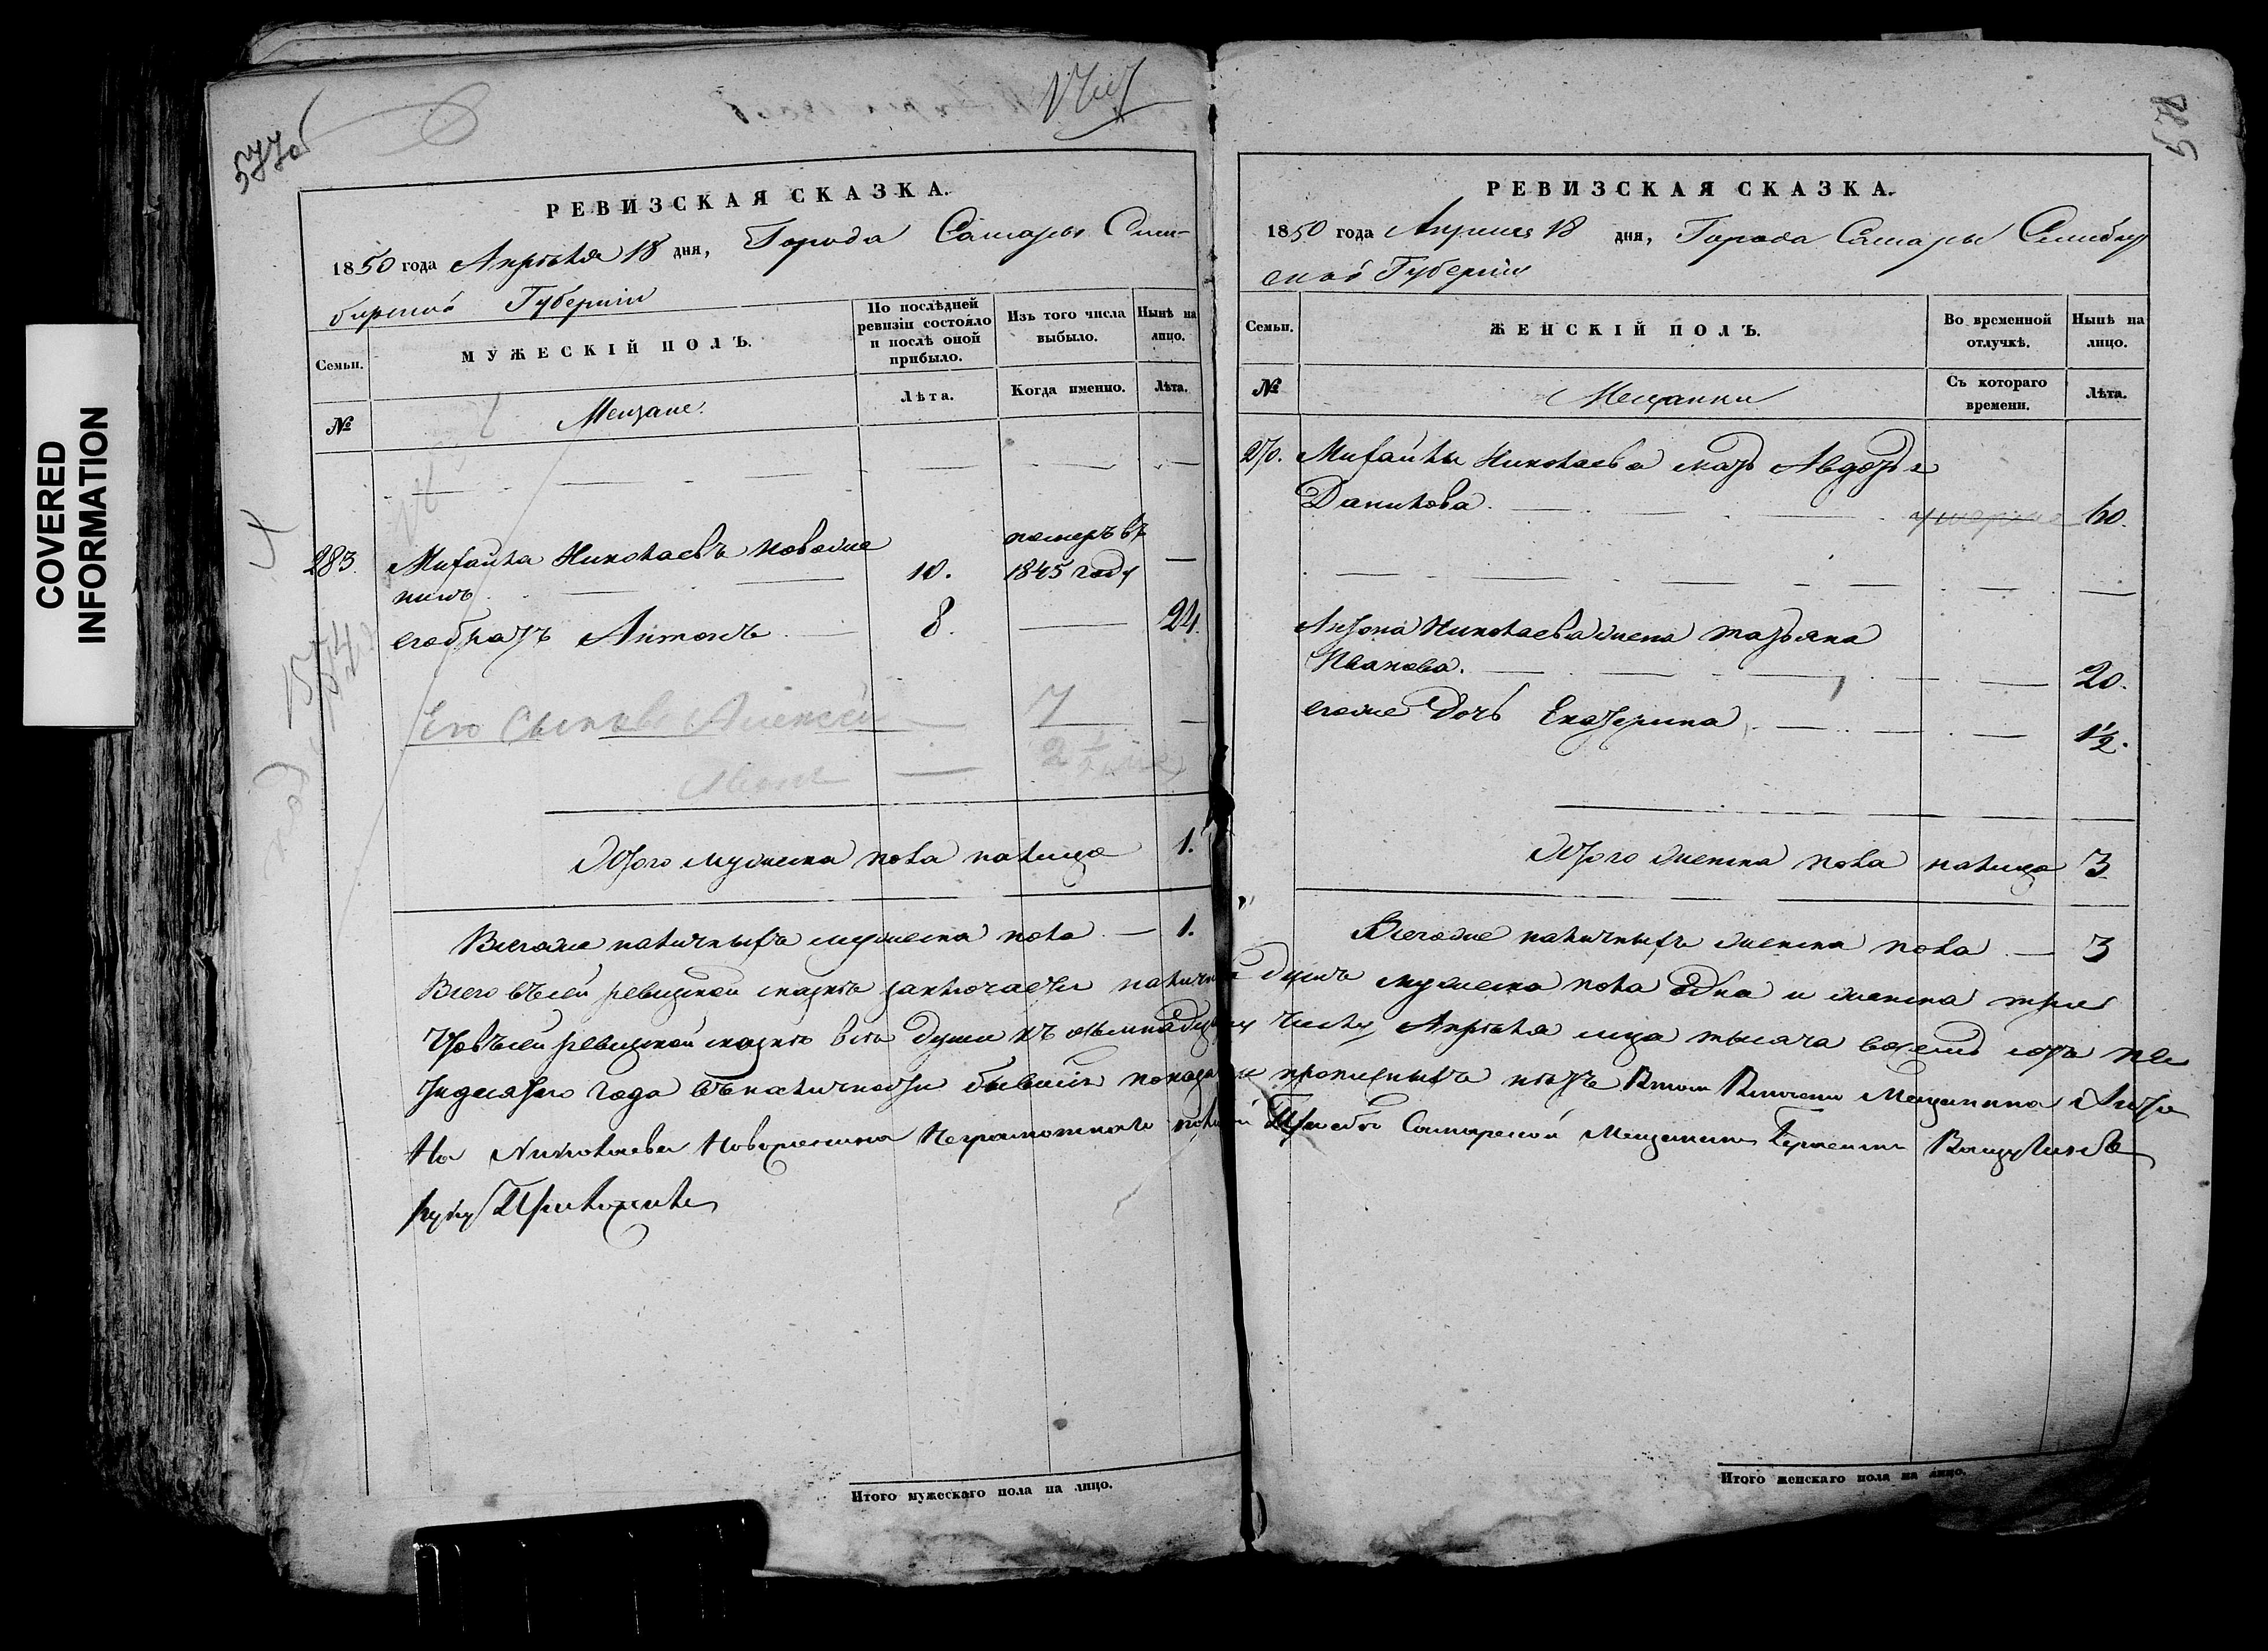 COVERED
INFORMATION
577об
РЕВИЗСКАЯ СКАЗКА.
1850 года Апрѣля 18 дня, Города Самары Сим-
бирской Губернiи
Семьи.
МУЖЕСКIЙ ПОЛЪ.
По послѣдней ревизiи состояло и послѣ оной прибыло.
Изъ того числа выбыло.
Нынѣ на лицо.
№
Мещане.
Лѣта.
Когда именно.
Лѣта.
283. Михайла Николаевъ 10. померъ въ 1845 году —
его братъ Антонъ 8. — 24.
Его Сыновья Алексей 7
2 1/2
Итого мужеска пола налицо 1.
Всегоже наличныхъ мужеска пола — 1.
578
РЕВИЗСКАЯ СКАЗКА.
1850 года Апреля 18 дня, Города Самары Симбир
ской Губернiи
Семьи.
ЖЕНСКIЙ ПОЛЪ.
Во временной отлучкѣ.
Нынѣ на лицо.
№
Мещанки
Съ котораго времени.
Лѣта.
Михайлы Николаева мать Авдотья
Данилова. умерла 60.
Антона Николаева жена татьяна
Иванова. 20.
егоже Дочь Екатерина 1 1/2.
Итого женска пола налицо 3
Всегоже наличныхъ женска пола — 3
Всего въсей ревизской сказкѣ заключается наличныхъ душъ мужеска пола одна и женска три
Чтовъсей ревизской сказкѣ всѣ души къ осьмнадцатому числу Апрѣля мца тысяча восемь сотъ пя
тидесятаго года въналичности бывшiя показаны прописныхъ нѣтъ Втом Мещанина Анто
на Николаева Неграмотнаго Прозбѣ Самарской Мещанинъ
руку Приложилъ
Итого мужескаго пола на лицо.
Итого женскаго пола на лицо.